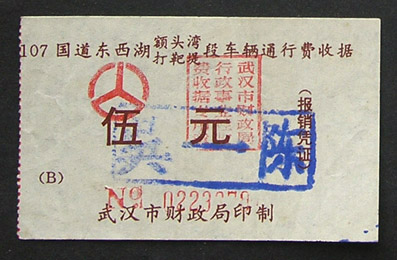 107国道东西湖额头湾打靶堤段车辆通行费收据
武汉市财政局
行政事业
费收据专
伍 元
(报销凭证)
陈
(B)
No 0223379
武汉市财政局印制